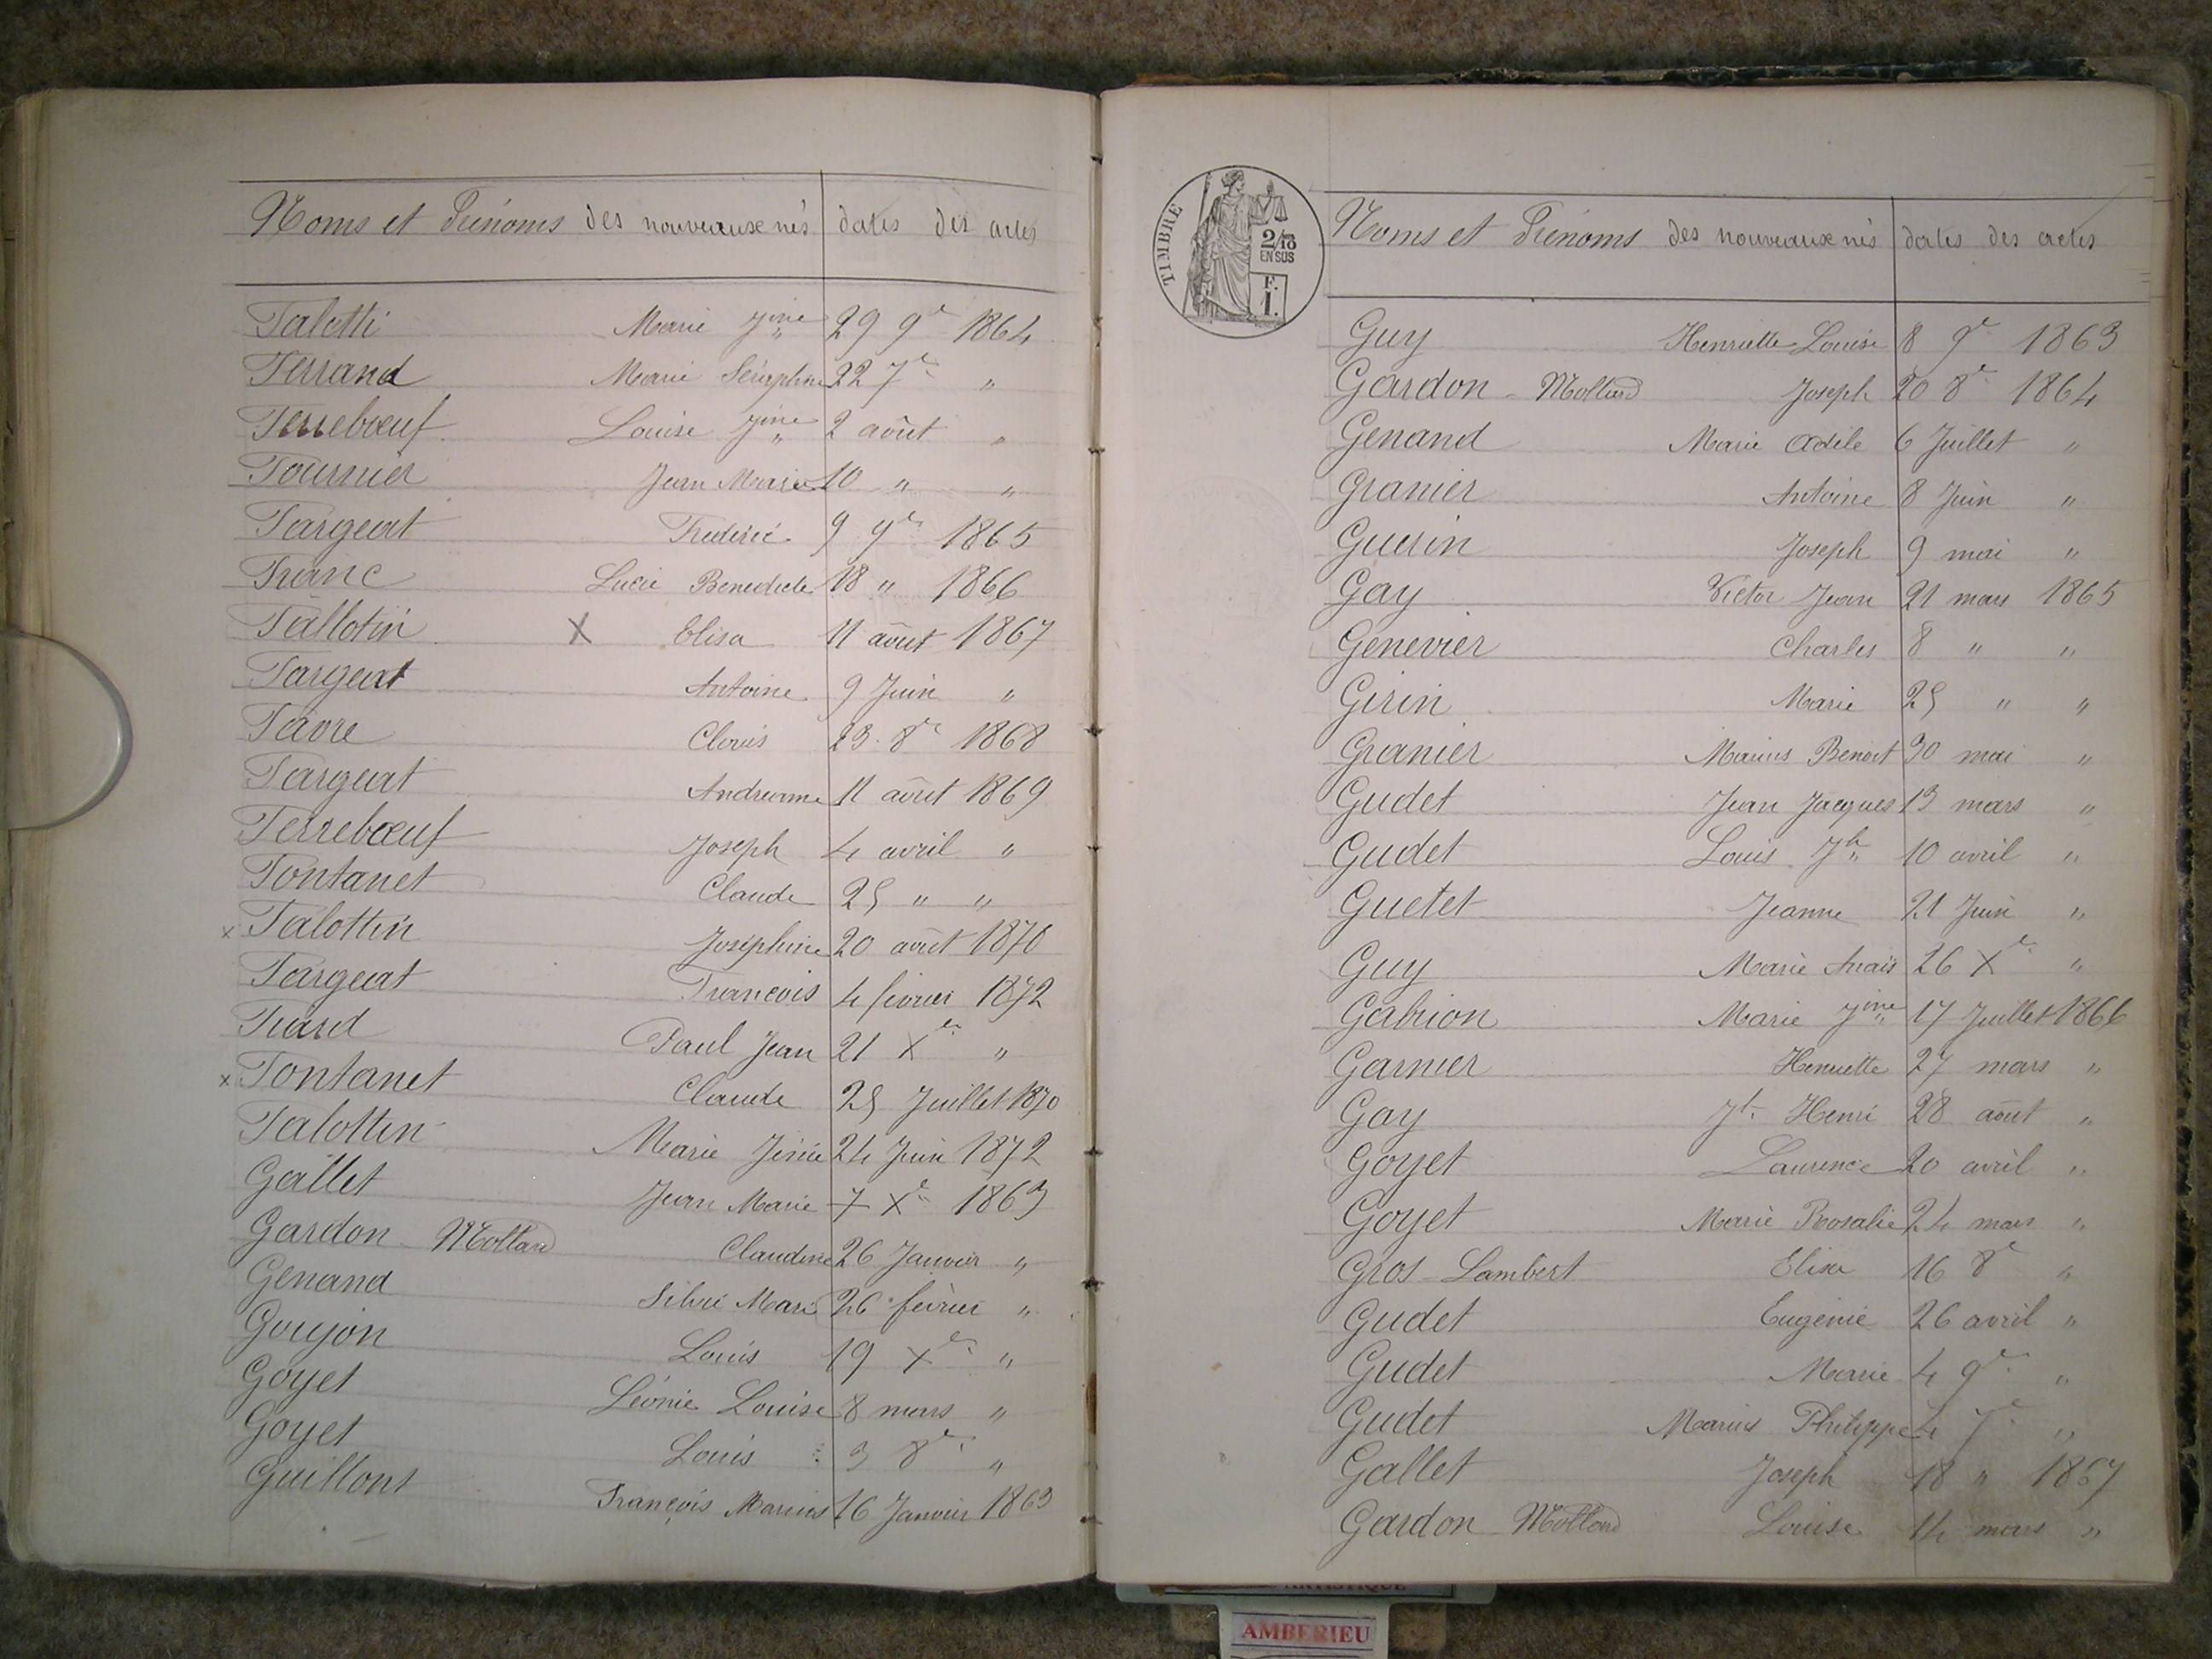 Noms et Prénoms des nouveaux nés dates des actes
Falotti Marie Jine 29 9e 1864
Ferrand Marie Séraphine 22 7e "
Ferrebœuf Louise Jine 2 août "
Fournier Jean Marie 10 " "
Fargeat Frédéric 9 9e 1865
Franc Lucie Benedicte 18 " 1866
Fallotin X Elisa 11 août 1867
Fargeat Antoine 9 Juin "
Favre Clovis 23 8e 1868
Fargeat Andreanne 11 août 1869
Ferrebœuf Joseph 4 avril "
Fontanet Claude 25 " "
x Falottin Joséphine 20 août 1870
Fargeat François 4 février 1872
Fiard Paul Jean 21 Xe "
x Fontanet Claude 25 Juillet 1870
Falottin Marie Jésée 24 Juin 1872
Gallet Jean Marie 7 Xe 1863
Gardon Mollard Claudine 26 Janvier "
Genand Silvie Marie 26 février "
Goujon Louis 19 Xe "
Goyet Léonie Louise 8 mars "
Goyet Louis 3 8e "
Guillont François Marius 16 Janvier 1863
TIMBRE
2/10
EN SUS
F.
1.
Noms et Prénoms des nouveaux nés dates des actes
Guy Henriette Louise 8 9e 1863
Gardon - Mollard Joseph 20 8e 1864
Genand Marie Adèle 6 Juillet "
Granier Antoine 8 Juin "
Guerin Joseph 9 mai "
Gay Victor Jean 21 mars 1865
Genevier Charles 8 " "
Girin Marie 25 " "
Granier Marius Benoit 30 mai "
Gudet Jean Jacques 13 mars "
Gudet Louis Jh 10 avril "
Guetet Jeanne 21 Juin "
Guy Marie Anaïs 26 Xe "
Gabrion Marie Jine 17 Juillet 1866
Garnier Henriette 27 mars "
Gay Jh Henri 28 août "
Goyet Laurence 20 avril "
Goyet Marie Rosalie 24 mars "
Gros Lambert Elisa 16 8e "
Gudet Eugénie 26 avril "
Gudet Marie 4 9e "
Gudet Marius Philippe 4 7e "
Gallet Joseph 18 " 1867
Gardon Mollard Louise 14 mars "
ARTISTIQUE
AMBERIEU